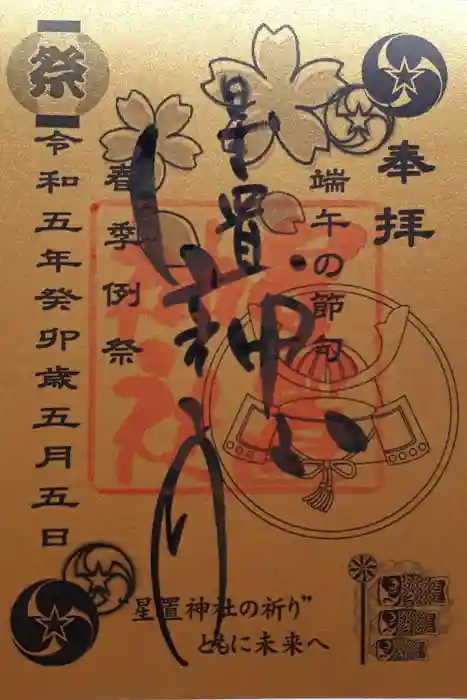 奉拝
端午の節句
星置神
星置神社
春季例祭
祭
令和五年癸卯歳五月五日
"星置神社の祈り"
ともに未来へ